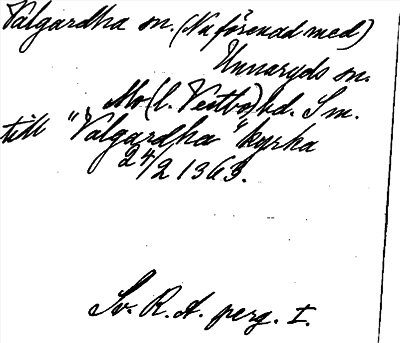 Valgardha sn. (Nu förenad med)
Unnaryds sn.
Mo (l. Vestbo) hd. Sm.
till "Valgardha" kyrka
24/2 1363.
Sv. R. A. perg. I.